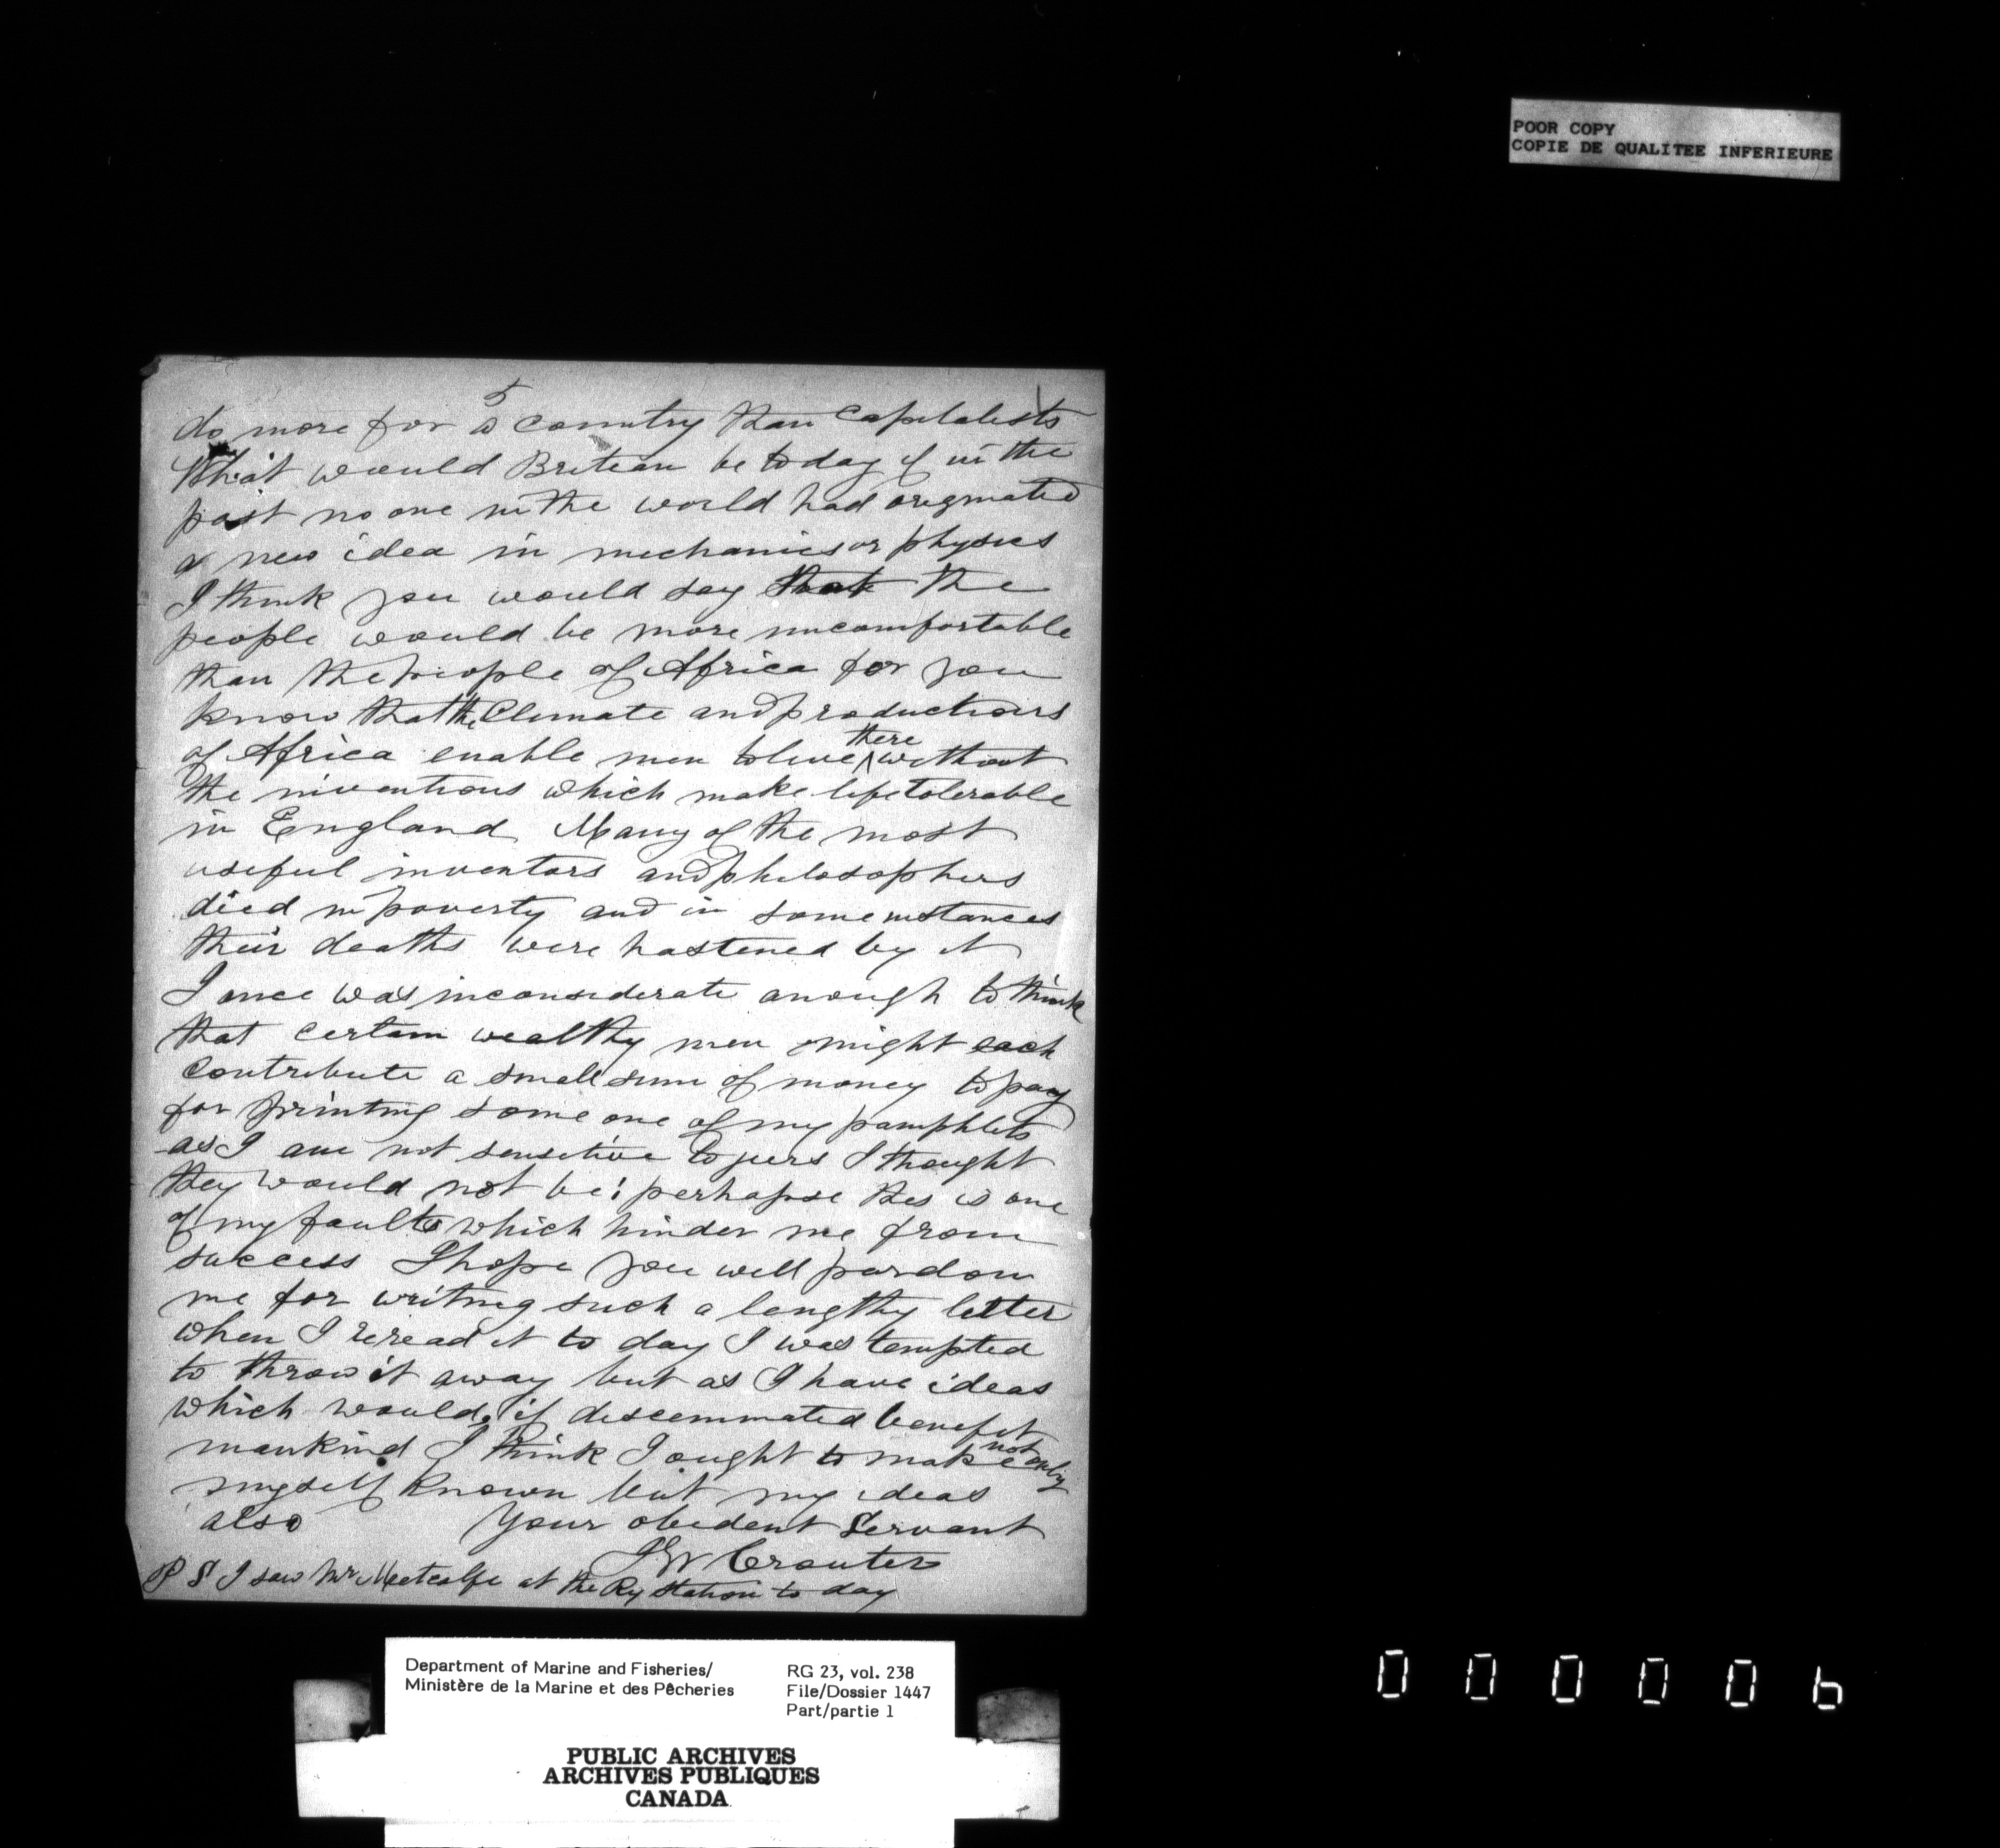 POOR COPY
COPIE DE QUALITEE INFERIEURE
5
do more for a country than capitalists
What would Britean be to day if in the
past no one in the world had origmated
a new idea in mechanics or physics
I think you would say that the
people would be more uncomfortable
than the people of Africa for you
know that the Climate and productions
of Africa enable men to live there without
the inventions which make life tolerable
in England Many of the most
useful inventors and philosophers
died in poverty and in some instances
their deaths were hastened by it
I once was inconsiderate anough to think
that certain wealthy men might each
contribute a small sum of money to pay
for printing some one of my pamphlets
as I am not sensitive to jeers I thought
they would not be; perhapse this is one
of my faults which hinder me from
success I hope you will pardon
me for writing such a lengthy letter
when I reread it to day I was tempted
to throw it away but as I have ideas
which would, if discemmated benefit
mankind I think I ought to make not only
myself known but my ideas
also Your obedent Servant
J W Crouter
P S I saw Mr Metcalfe at the Ry station to day
Department of Marine and Fisheries/
Ministère de la Marine et des Pêcheries
RG 23, vol. 238
File/Dossier 1447
Part/partie 1
PUBLIC ARCHIVES
ARCHIVES PUBLIQUES
CANADA
000006